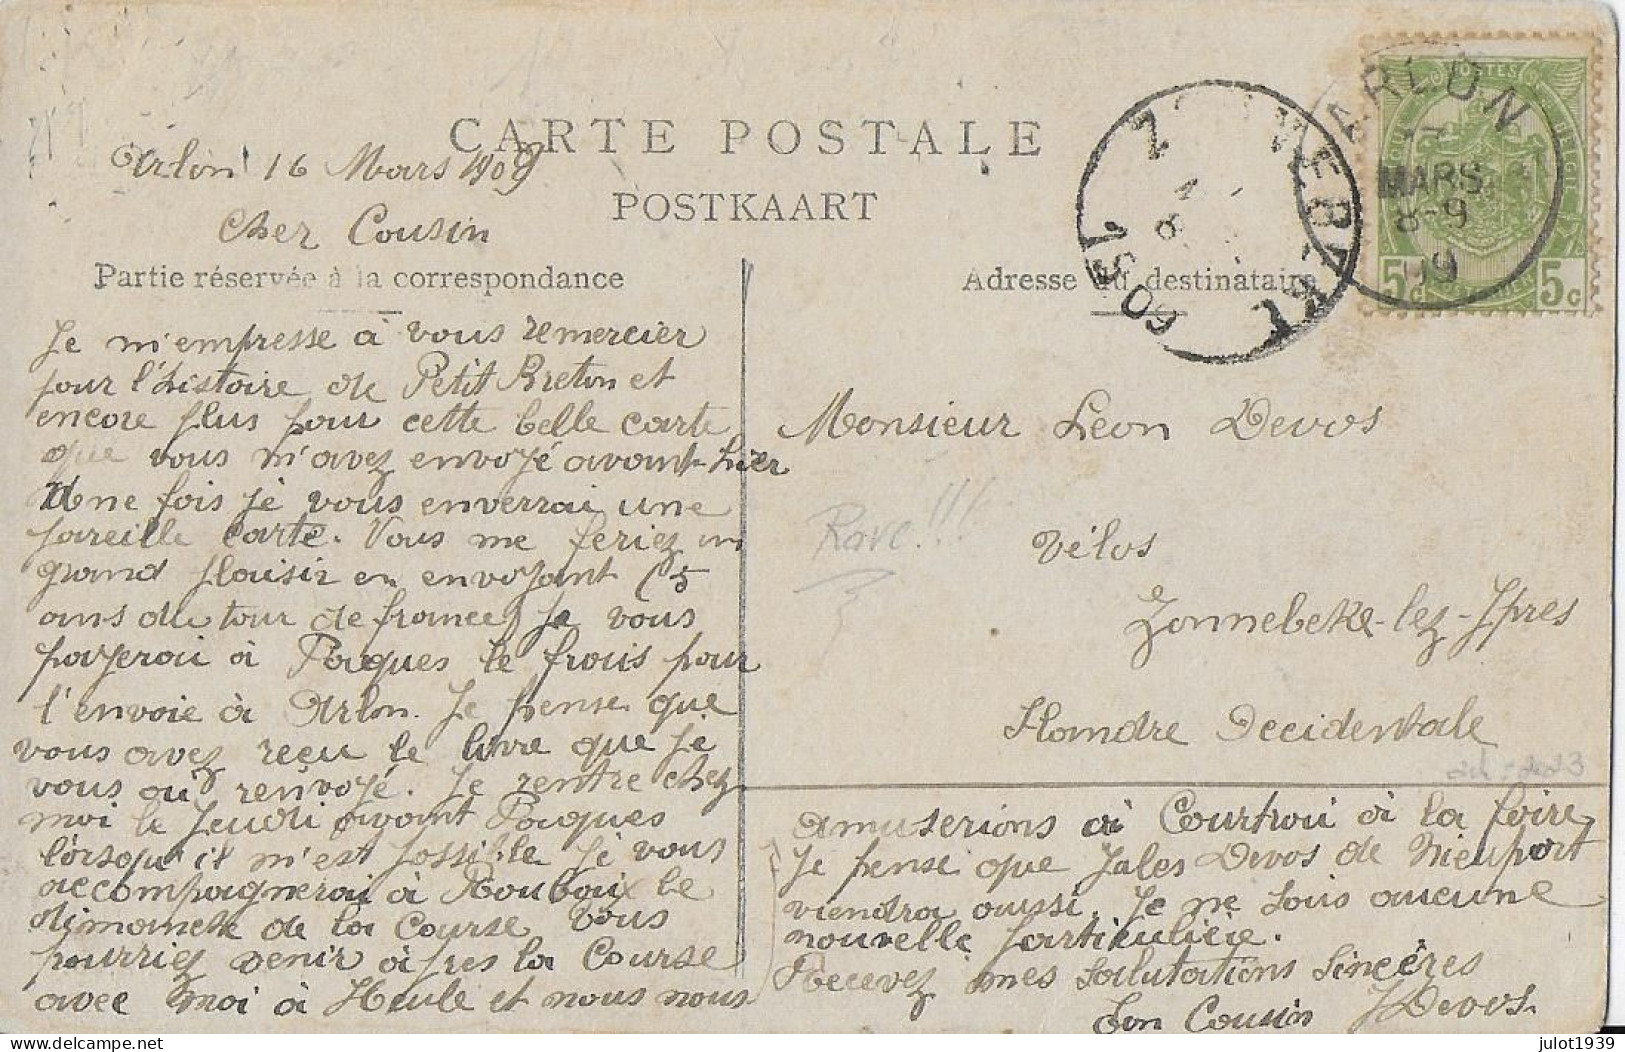 CARTE POSTALE
POSTKAART
Arlon 16 Mars 1909
Cher Cousin
Partie réservée à la correspondance
Je m'empresse à vous remercier
pour l'histoire de Petit Breton et
encore plus pour cette belle carte
que vous m'avez envoyé avant-hier
Une fois je vous enverrai une
pareille carte. Vous me feriez un
grand plaisir en envoyant (5
ans du tour de france) Je vous
payerai à Pâques le frais pour
l'envoie à Arlon. Je pense que
vous avez reçu le livre que je
vous ai renvoyé. Je rentre chez
moi le Jeudi avant Pâques
lorsqu'il m'est possible je vous
accompagnerai à Roubaix le
dimanche de la Course Vous
pourriez venir après la Course
avec moi à Heule et nous nous
Adresse du destinataire
ARLON
MARS
8-9
09
1909
5c 5c
Monsieur Léon Devos
Rare!!!
Vélos
Zonnebeke-lez-Ypres
Flandre Occidentale
amuserions à Courtrai à la foire
Je pense que Jules Devos de Nieuport
viendra aussi. Je ne sais aucune
nouvelle particulière.
Recevez mes salutations sincères
Ton Cousin J Devos.
julot1939